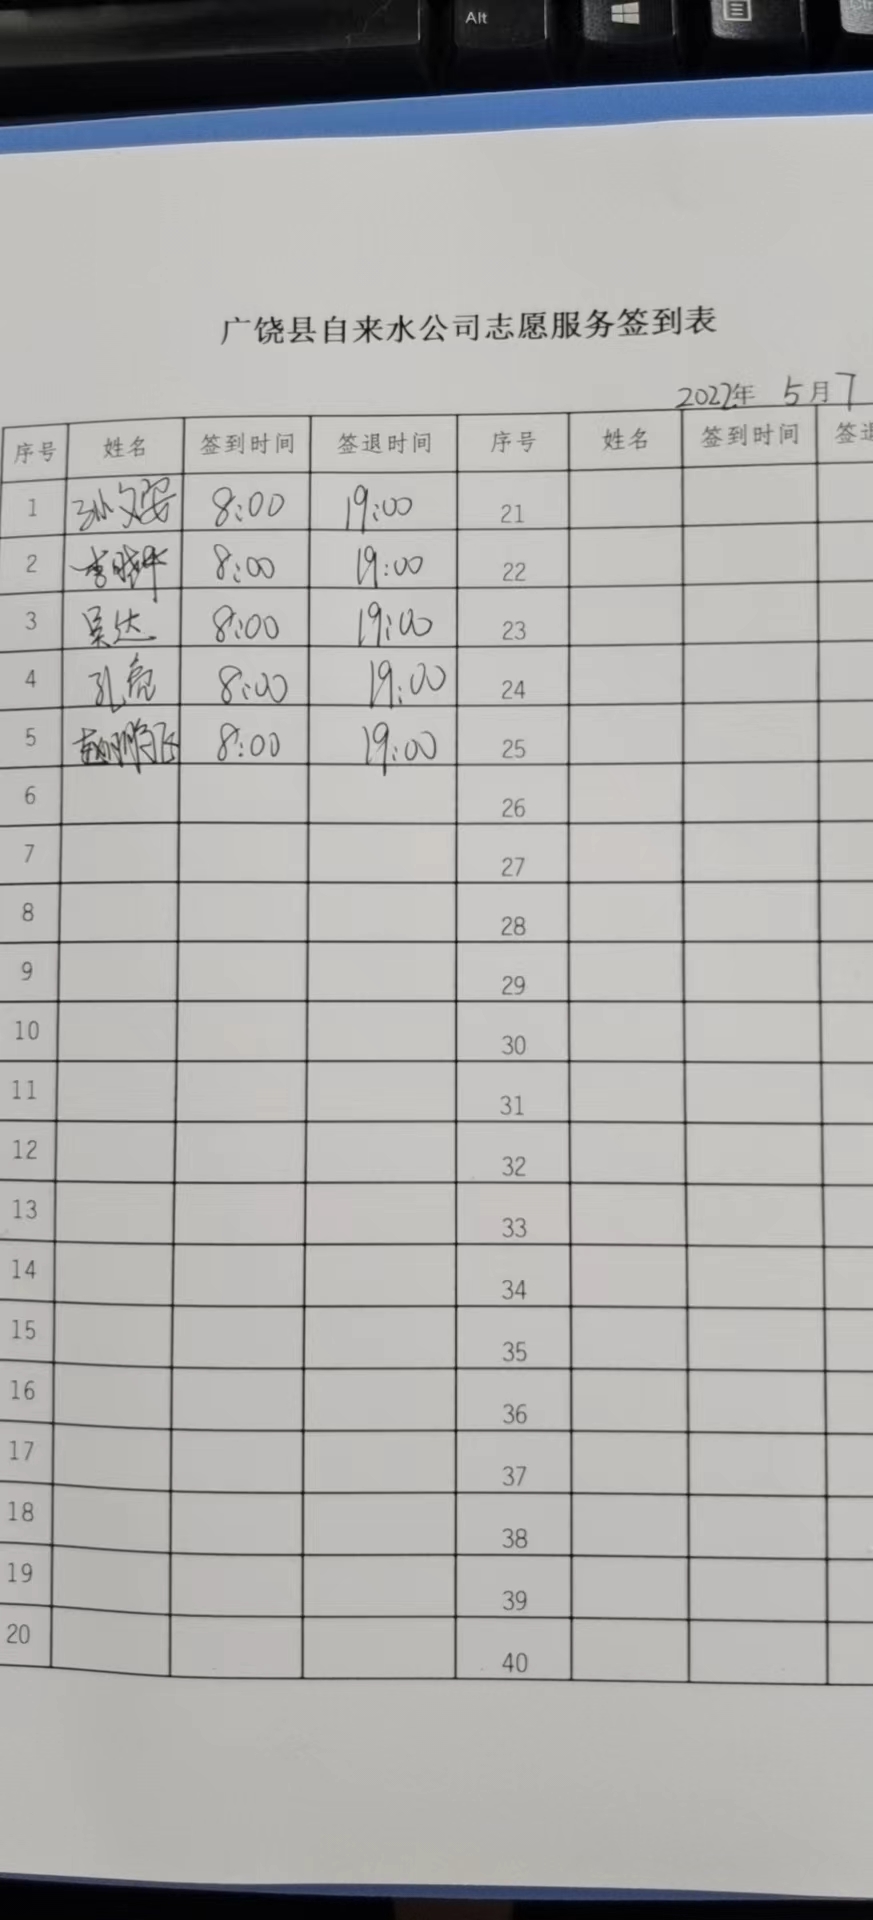 Alt
广饶县自来水公司志愿服务签到表
2022年 5月7
序号 姓名 签到时间 签退时间 序号 姓名 签到时间 签退
1 8:00 19:00 21
2 李晓华 8:00 19:00 22
3 吴达 8:00 19:00 23
4 孔亮 8:00 19:00 24
5 赵鹏飞 8:00 19:00 25
6 26
7 27
8 28
9 29
10 30
11 31
12 32
13 33
14 34
15 35
16 36
17 37
18 38
19 39
20 40